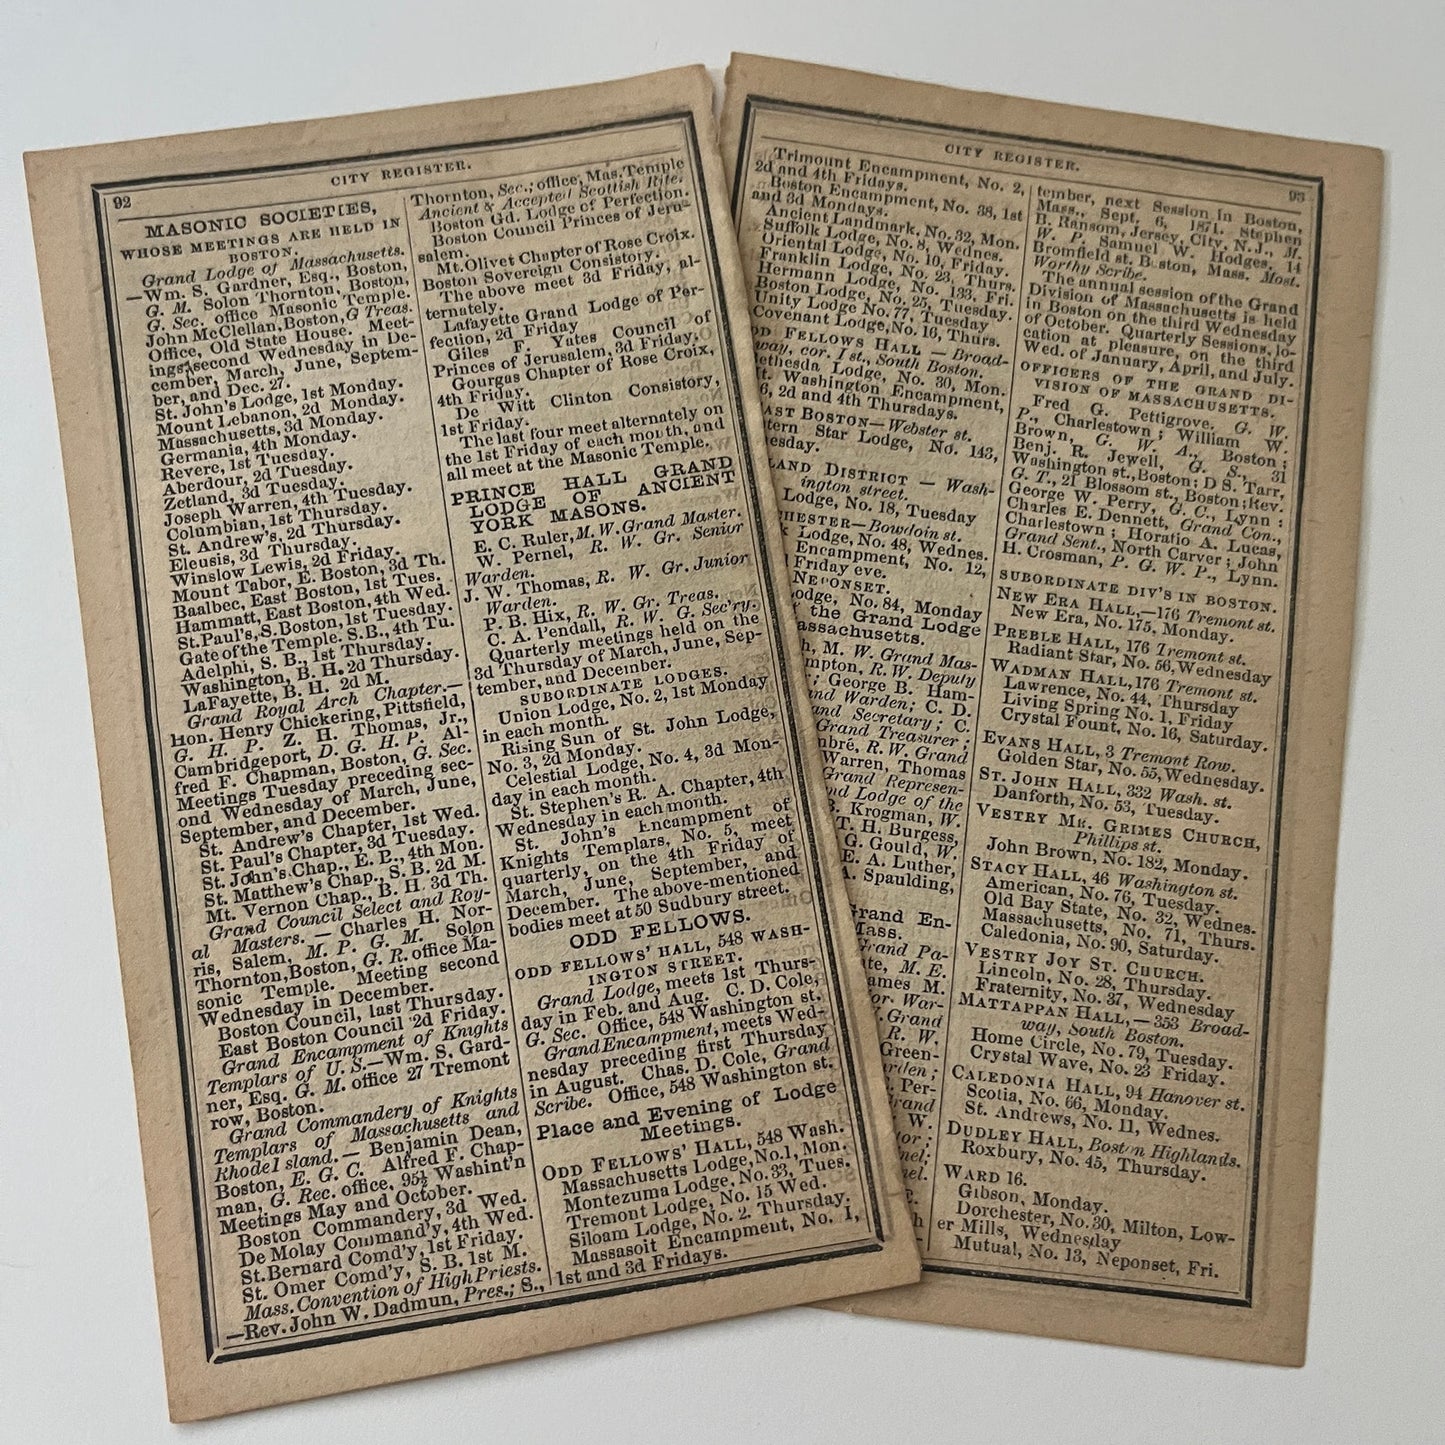 92
CITY REGISTER.
MASONIC SOCIETIES,
WHOSE MEETINGS ARE HELD IN
BOSTON.
Grand Lodge of Massachusetts.
—Wm. S. Gardner, Esq., Boston,
G. M. Solon Thornton, Boston,
G. Sec. office Masonic Temple.
John McClellan, Boston, G Treas.
Office, Old State House. Meet-
ings second Wednesday in De-
cember, March, June, Septem-
ber, and Dec. 27.
St. John's Lodge, 1st Monday.
Mount Lebanon, 2d Monday.
Massachusetts, 3d Monday.
Germania, 4th Monday.
Revere, 1st Tuesday.
Aberdour, 2d Tuesday.
Zetland, 3d Tuesday.
Joseph Warren, 4th Tuesday.
Columbian, 1st Thursday.
St. Andrew's, 2d Thursday.
Eleusis, 3d Thursday.
Winslow Lewis, 2d Friday.
Mount Tabor, E. Boston, 3d Th.
Baalbec, East Boston, 1st Tues.
Hammatt, East Boston, 4th Wed.
St. Paul's, S. Boston, 1st Tuesday.
Gate of the Temple. S.B., 4th Tu.
Adelphi, S. B., 1st Thursday.
Washington, B. H. 2d Thursday.
LaFayette, B. H. 2d M.
Grand Royal Arch Chapter.—
Hon. Henry Chickering, Pittsfield,
G. H. P. Z. H. Thomas, Jr.,
Cambridgeport, D. G. H. P. Al-
fred F. Chapman, Boston, G. Sec.
Meetings Tuesday preceding sec-
ond Wednesday of March, June,
September, and December.
St. Andrew's Chapter, 1st Wed.
St. Paul's Chapter, 3d Tuesday.
St. John's Chap., E. B., 4th Mon.
St. Matthew's Chap., S. B. 2d M.
Mt. Vernon Chap., B. H. 3d Th.
Grand Council Select and Roy-
al Masters. — Charles H. Nor-
ris, Salem, M. P. G. M. Solon
Thornton, Boston, G. R. office Ma-
sonic Temple. Meeting second
Wednesday in December.
Boston Council, last Thursday.
East Boston Council 2d Friday.
Grand Encampment of Knights
Templars of U. S.—Wm. S. Gard-
ner, Esq. G. M. office 27 Tremont
row, Boston.
Grand Commandery of Knights
Templars of Massachusetts and
Rhode Island.— Benjamin Dean,
Boston, E. G. C. Alfred F. Chap-
man, G. Rec. office, 95½ Washint'n
Meetings May and October.
Boston Commandery, 3d Wed.
De Molay Command'y, 4th Wed.
St. Bernard Comd'y, 1st Friday.
St. Omer Comd'y, S. B. 1st M.
Mass. Convention of High Priests.
—Rev. John W. Dadmun, Pres.; S.,
Thornton, Sec.; office, Mas. Temple
Ancient & Accepted Scottish Rite.
Boston Gd. Lodge of Perfection.
Boston Council Princes of Jeru-
salem.
Mt. Olivet Chapter of Rose Croix.
Boston Sovereign Consistory.
The above meet 3d Friday, al-
ternately.
Lafayette Grand Lodge of Per-
fection, 2d Friday
Giles F. Yates Council of
Princes of Jerusalem, 3d Friday.
Gourgas Chapter of Rose Croix,
4th Friday.
De Witt Clinton Consistory,
1st Friday.
The last four meet alternately on
the 1st Friday of each month, and
all meet at the Masonic Temple.
PRINCE HALL GRAND
LODGE OF ANCIENT
YORK MASONS.
E. C. Ruler, M. W. Grand Master.
W. Pernel, R. W. Gr. Senior
Warden.
J. W. Thomas, R. W. Gr. Junior
Warden.
P. B. Hix, R. W. Gr. Treas.
C. A. Pendall, R. W. G. Sec'ry.
Quarterly meetings held on the
3d Thursday of March, June, Sep-
tember, and December.
SUBORDINATE LODGES.
Union Lodge, No. 2, 1st Monday
in each month.
Rising Sun of St. John Lodge,
No. 3, 2d Monday.
Celestial Lodge, No. 4, 3d Mon-
day in each month.
St. Stephen's R. A. Chapter, 4th
Wednesday in each month.
St. John's Encampment of
Knights Templars, No. 5, meet
quarterly, on the 4th Friday of
March, June, September, and
December. The above-mentioned
bodies meet at 50 Sudbury street.
ODD FELLOWS.
ODD FELLOWS' HALL, 548 WASH-
INGTON STREET.
Grand Lodge, meets 1st Thurs-
day in Feb. and Aug. C. D. Cole,
G. Sec. Office, 548 Washington st.
Grand Encampment, meets Wed-
nesday preceding first Thursday
in August. Chas. D. Cole, Grand
Scribe. Office, 548 Washington st.
Place and Evening of Lodge
Meetings.
ODD FELLOWS' HALL, 548 Wash.
Massachusetts Lodge, No. 1, Mon.
Montezuma Lodge, No. 33, Tues.
Tremont Lodge, No. 15 Wed.
Siloam Lodge, No. 2. Thursday.
Massasoit Encampment, No. 1,
1st and 3d Fridays.
CITY REGISTER.
93
Trimount Encampment, No. 2,
2d and 4th Fridays.
Boston Encampment, No. 38, 1st
and 3d Mondays.
Ancient Landmark, No. 32, Mon.
Suffolk Lodge, No. 8, Wednes.
Oriental Lodge, No. 10, Friday.
Franklin Lodge, No. 23, Thurs.
Hermann Lodge, No. 133, Fri.
Boston Lodge, No. 25, Tuesday.
Unity Lodge No. 77, Tuesday
Covenant Lodge, No. 16, Thurs.
DD FELLOWS HALL — Broad-
way, cor. 1 st., South Boston.
ethesda Lodge, No. 30, Mon.
t. Washington Encampment,
6, 2d and 4th Thursdays.
AST BOSTON— Webster st.
tern Star Lodge, No. 143,
esday.
LAND DISTRICT — Wash-
ington street.
Lodge, No. 18, Tuesday
HESTER—Bowdoin st.
k Lodge, No. 48, Wednes.
Encampment, No. 12,
Friday eve.
NEPONSET.
odge, No. 84, Monday
f the Grand Lodge
assachusetts.
h, M. W. Grand Mas-
mpton, R. W. Deputy
r; George B. Ham-
nd Warden; C. D.
and Secretary; C.
Grand Treasurer;
mbré, R. W. Grand
Warren, Thomas
Grand Represen-
nd Lodge of the
B. Krogman, W.
T. H. Burgess,
G. Gould, W.
E. A. Luther,
A. Spaulding,
Grand En-
Mass.
Grand Pa-
te, M. E.
ames M.
or. War-
. Grand
R. W.
Green-
rden;
. Per-
rand
W.
or;
nel;
nel.
tember, next Session in Boston,
Mass., Sept. 6, 1871. Stephen
B. Ransom, Jersey City, N. J., M.
W. P. Samuel W. Hodges, 14
Bromfield st. Boston, Mass. Most.
Worthy Scribe.
The annual session of the Grand
Division of Massachusetts is held
in Boston on the third Wednesday
of October. Quarterly Sessions, lo-
cation at pleasure, on the third
Wed. of January, April, and July.
OFFICERS OF THE GRAND DI-
VISION OF MASSACHUSETTS.
Fred G. Pettigrove, G. W.
P., Charlestown; William W.
Brown, G. W. A., Boston;
Benj. R. Jewell, G. S., 31
Washington st., Boston; D S. Tarr,
G. T., 21 Blossom st., Boston; Rev.
George W. Perry, G. C., Lynn;
Charles E. Dennett, Grand Con.,
Charlestown; Horatio A. Lucas,
Grand Sent., North Carver; John
H. Crosman, P. G. W. P., Lynn.
SUBORDINATE DIV'S IN BOSTON.
NEW ERA HALL,—176 Tremont st.
New Era, No. 175, Monday.
PREBLE HALL, 176 Tremont st.
Radiant Star, No. 56, Wednesday
WADMAN HALL, 176 Tremont st.
Lawrence, No. 44, Thursday
Living Spring No. 1, Friday
Crystal Fount, No. 16, Saturday.
EVANS HALL, 3 Tremont Row.
Golden Star, No. 55, Wednesday.
ST. JOHN HALL, 332 Wash. st.
Danforth, No. 53, Tuesday.
VESTRY MR. GRIMES CHURCH,
Phillips st.
John Brown, No. 182, Monday.
STACY HALL, 46 Washington st.
American, No. 76, Tuesday.
Old Bay State, No. 32, Wednes.
Massachusetts, No. 71, Thurs.
Caledonia, No. 90, Saturday.
VESTRY JOY ST. CHURCH.
Lincoln, No. 28, Thursday.
Fraternity, No. 37, Wednesday
MATTAPPAN HALL,—353 Broad-
way, South Boston.
Home Circle, No. 79, Tuesday.
Crystal Wave, No. 23 Friday.
CALEDONIA HALL, 94 Hanover st.
Scotia, No. 66, Monday.
St. Andrews, No. 11, Wednes.
DUDLEY HALL, Boston Highlands.
Roxbury, No. 45, Thursday.
WARD 16.
Gibson, Monday.
Dorchester, No. 30, Milton, Low-
er Mills, Wednesday
Mutual, No. 13, Neponset, Fri.